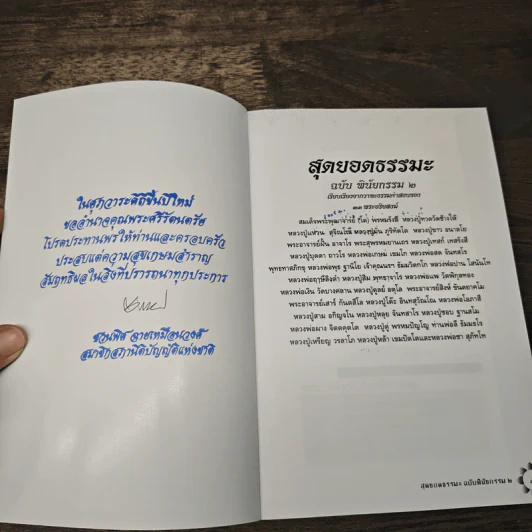 ในศุภวาระดิถีขึ้นปีใหม่
ขออำนาจคุณพระศรีรัตนตรัย
โปรดประทานพรให้ท่านและครอบครัว
ประสบแต่ความสุขเกษมสำราญ
สัมฤทธิผลในสิ่งที่ปรารถนาทุกประการ
ชวนพิศ ฉายเหมือนวงศ์
สมาชิกสภานิติบัญญัติแห่งชาติ
สุดยอดธรรมะ
ฉบับ พินัยกรรม ๒
เรียบเรียงจากวาทะธรรมคำสอนของ
๓๓ พระอริยสงฆ์
สมเด็จพระพุฒาจารย์ (โต) พรหมรังสี หลวงปู่ทวดวัดช้างให้
หลวงปู่แหวน สุจิณโณ หลวงปู่มั่น ภูริทัตโต หลวงปู่ขาว อนาลโย
พระอาจารย์ฝั้น อาจาโร พระสุพรหมยานเถร หลวงปู่เทสก์ เทสรังสี
หลวงปู่บุดดา ถาวโร หลวงพ่อเกษม เขมโก หลวงพ่อสด จันทสโร
พุทธทาสภิกขุ หลวงพ่อพุธ ฐานิโย เจ้าคุณนรฯ ธัมมวิตกโก หลวงพ่อปาน โสนันโท
หลวงพ่อฤาษีลิงดำ หลวงปู่สิม พุทธาจาโร หลวงพ่อแพ วัดพิกุลทอง
หลวงพ่อเงิน วัดบางคลาน หลวงปู่ดูลย์ อตุโล พระอาจารย์สิงห์ ขันตยาคโม
พระอาจารย์เสาร์ กันตสีโล หลวงปู่โต๊ะ อินทสุวัณโณ หลวงพ่อโอภาสี
หลวงปู่สาม อภิญจโณ หลวงปู่หลุย จันทสาโร หลวงปู่ชอบ ฐานสโม
หลวงพ่อผาง จิตตคุตโต หลวงปู่ดู่ พรหมปัญโญ ท่านพ่อลี ธัมมธโร
หลวงปู่เหรียญ วรลาโภ หลวงปู่หล้า เขมปัตโตและหลวงพ่อชา สุภัทโท
สุดยอดธรรมะ ฉบับพินัยกรรม ๒